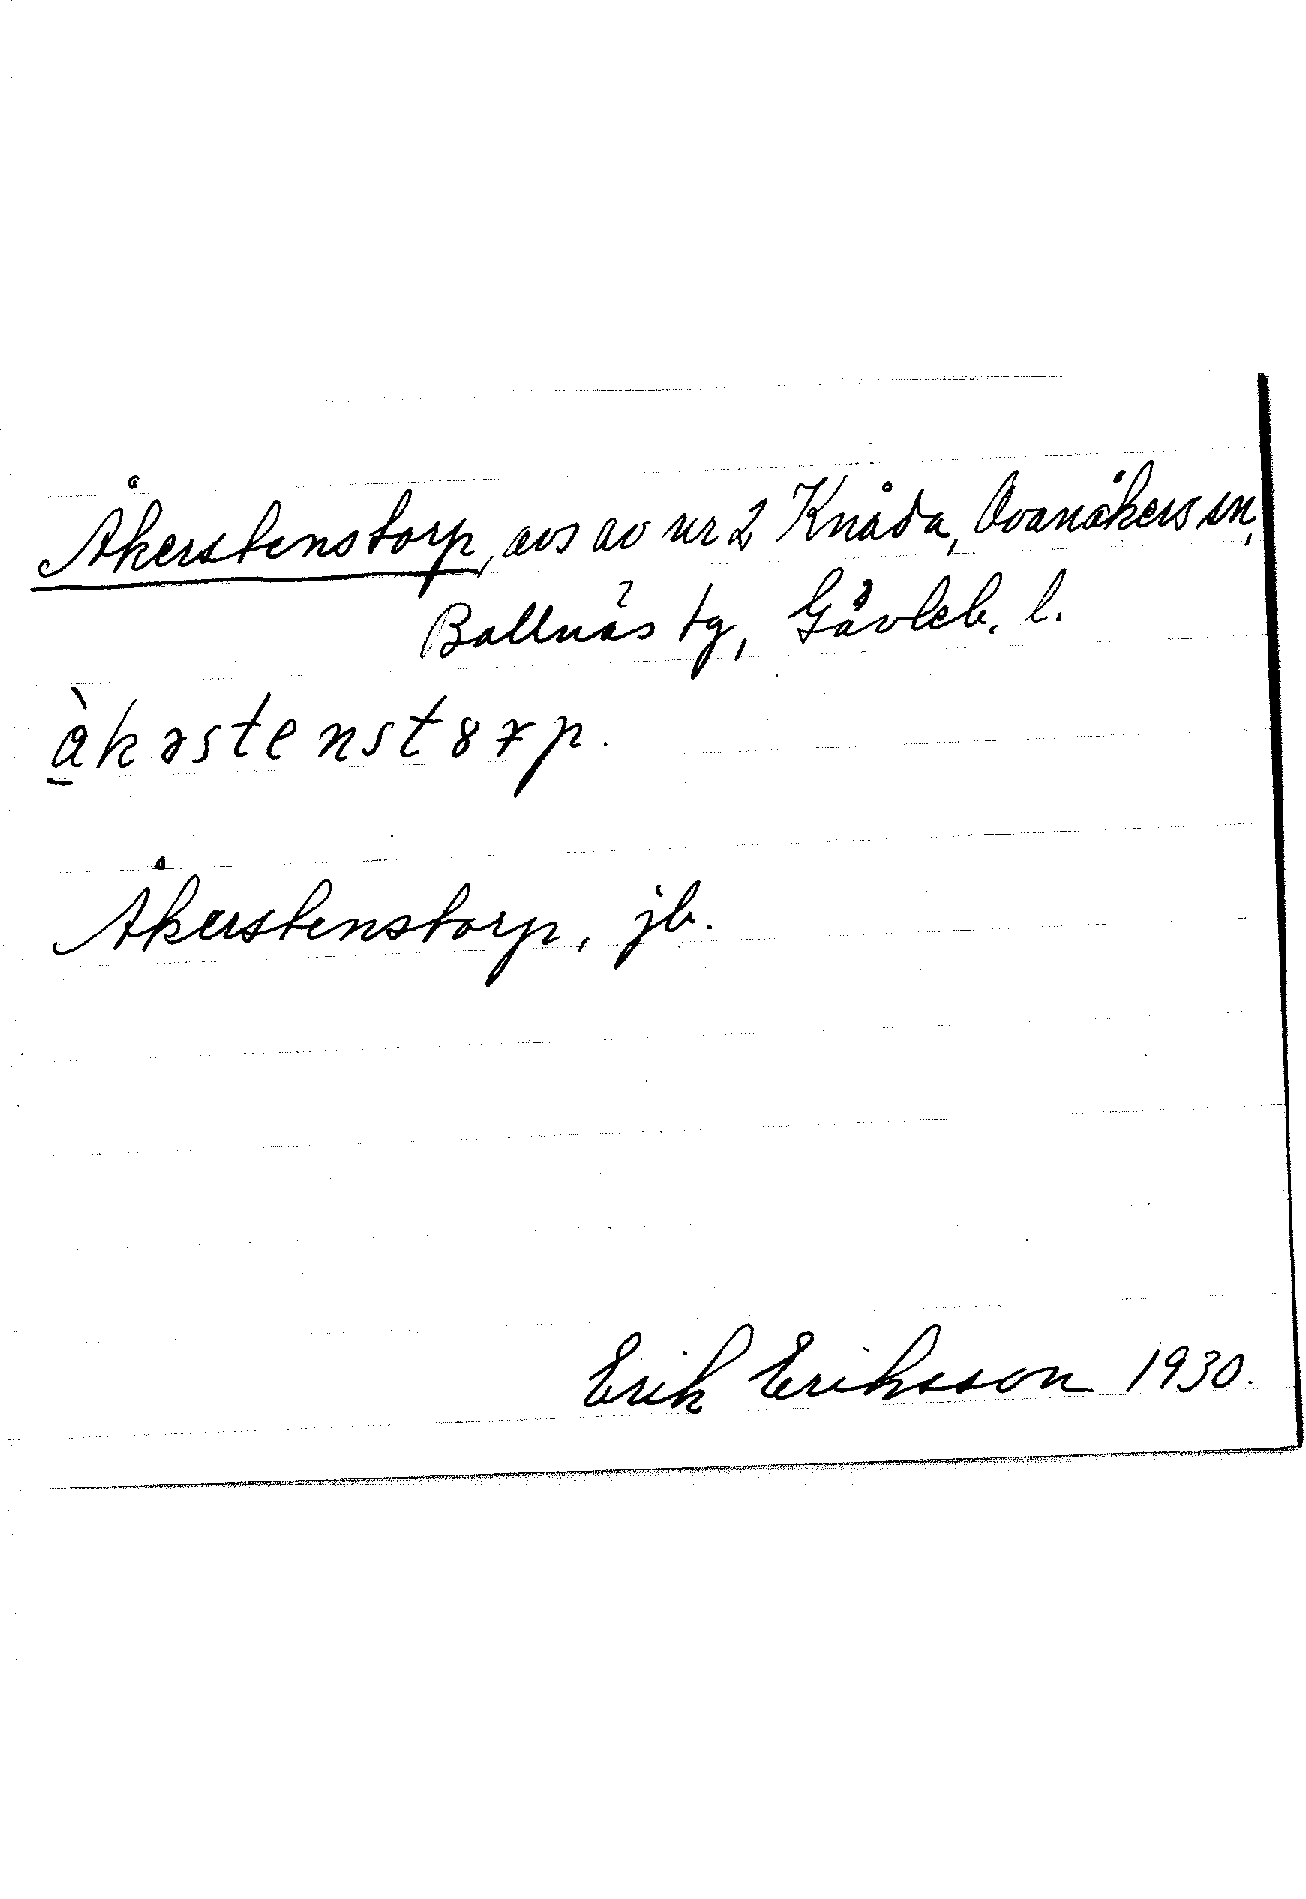 Åkerstenstorp, avs av nr 2 Knåda, Ovanåkers sn,
Bollnäs tg, Gävleb. l.
Åkerstenstorp, jb.
Erik Eriksson 1930.